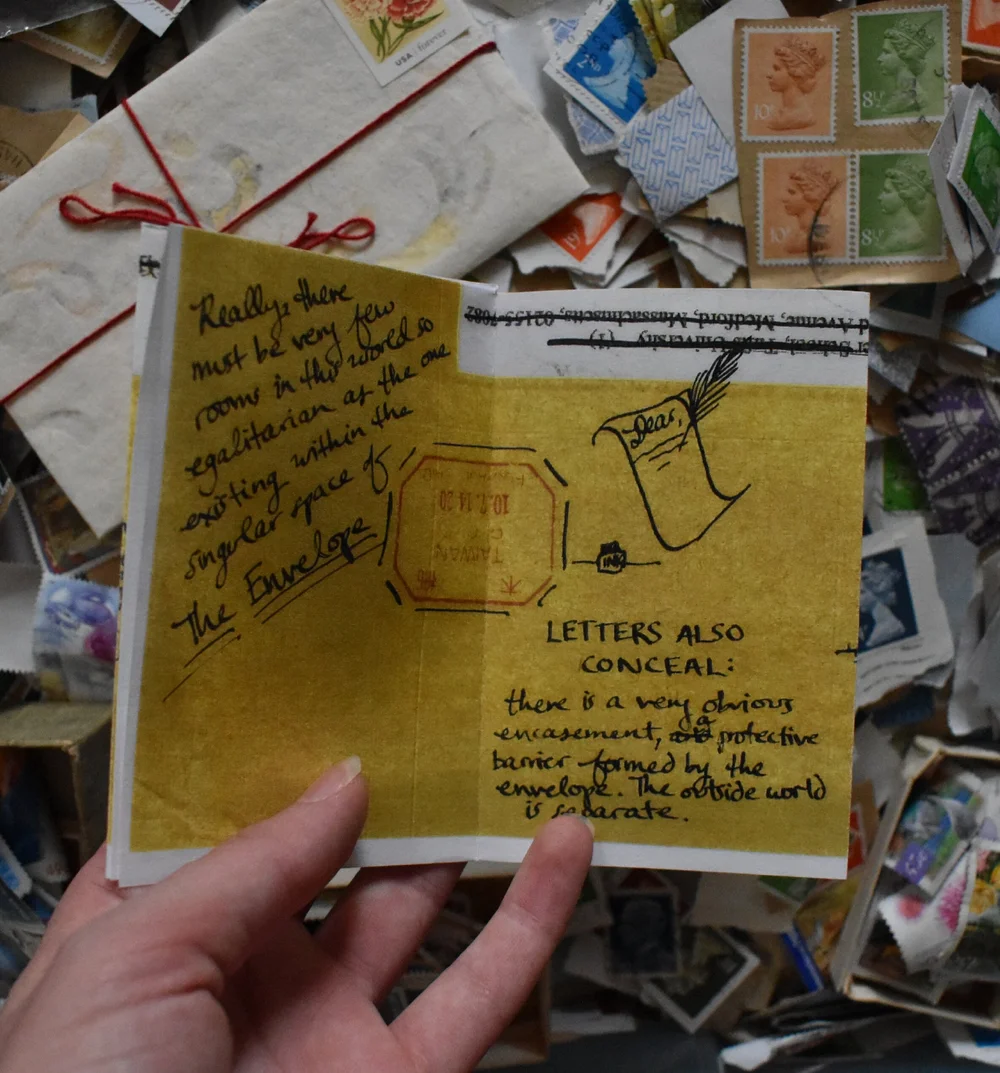 USA forever
2nd
10P
8½P
10P
8½P
Really, there
must be very few
rooms in this world so
egalitarian as the one
existing within the
singular space of
The Envelope
d Avenue, Medford, Massachusetts, 02155-7082
School, Tufts University (1)
Dear,
INK
10.7.14.20
TAIWAN
LETTERS ALSO
CONCEAL:
there is a very obvious
encasement, a protective
barrier formed by the
envelope. The outside world
is separate.